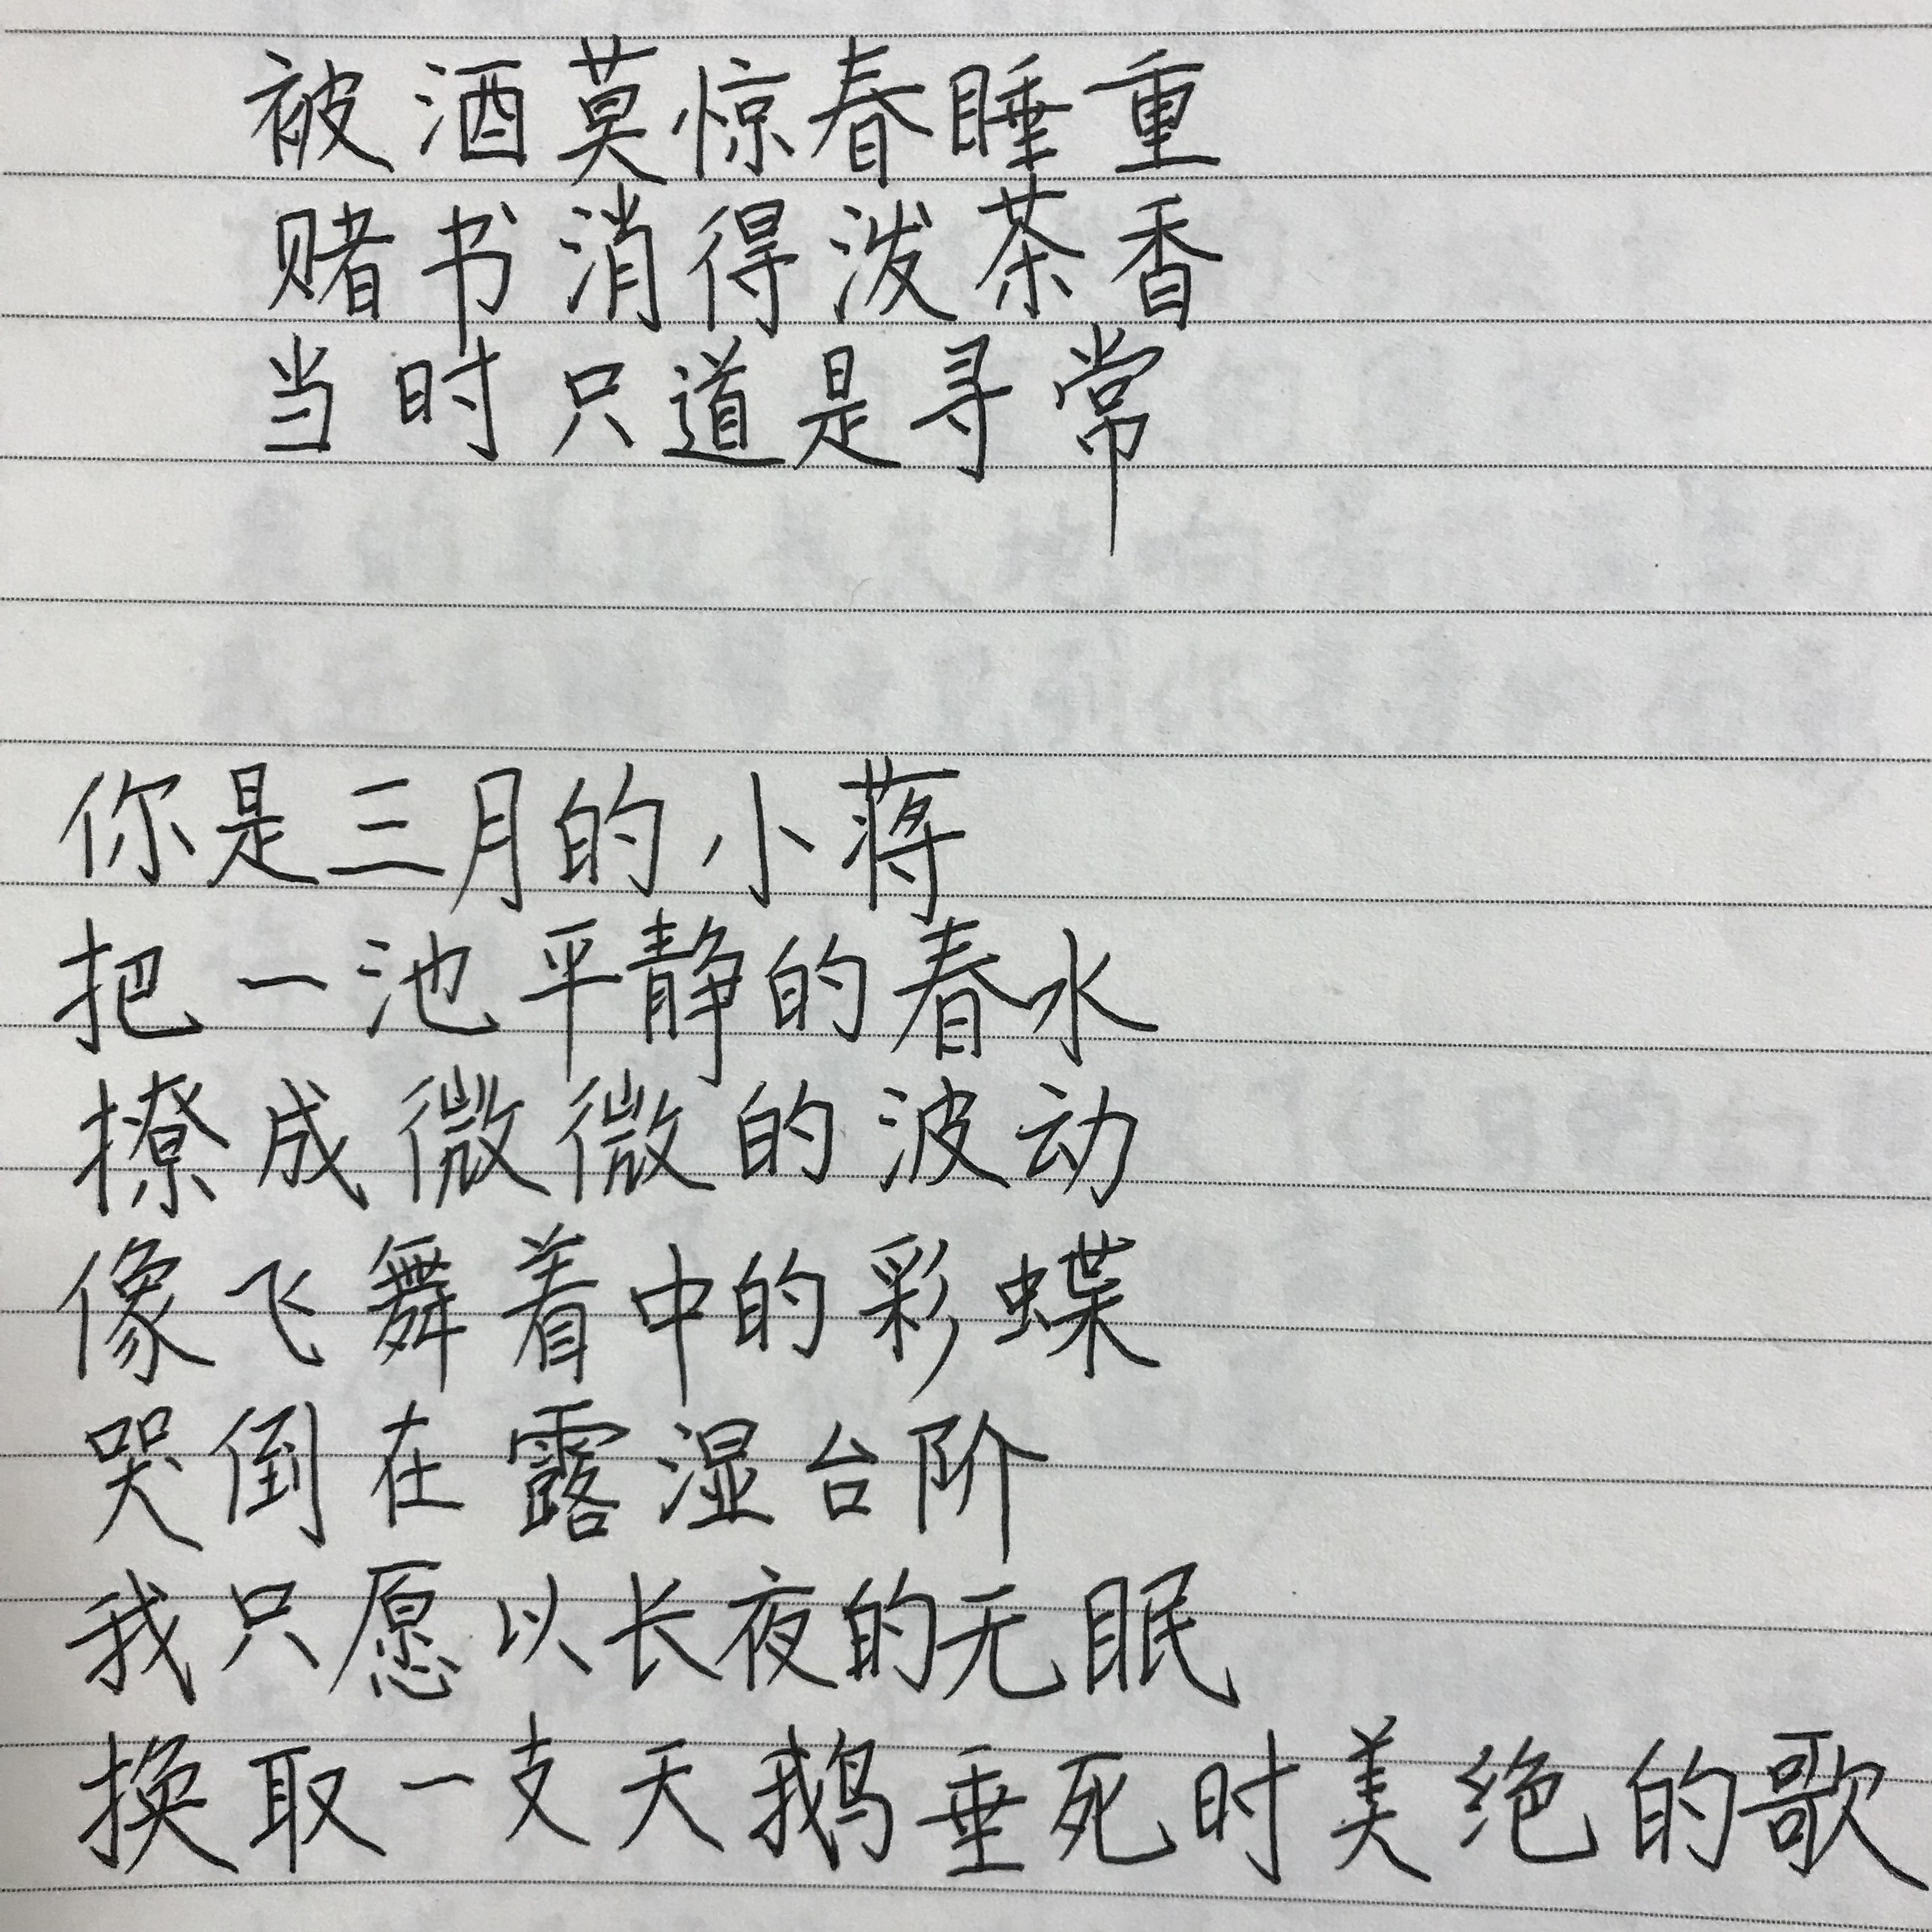 被酒莫惊春睡重
赌书消得泼茶香
当时只道是寻常
你是三月的小蒋
把一池平静的春水
撩成微微的波动
像飞舞着中的彩蝶
哭倒在露湿台阶
我只愿以长夜的无眠
换取一支天鹅垂死时美绝的歌